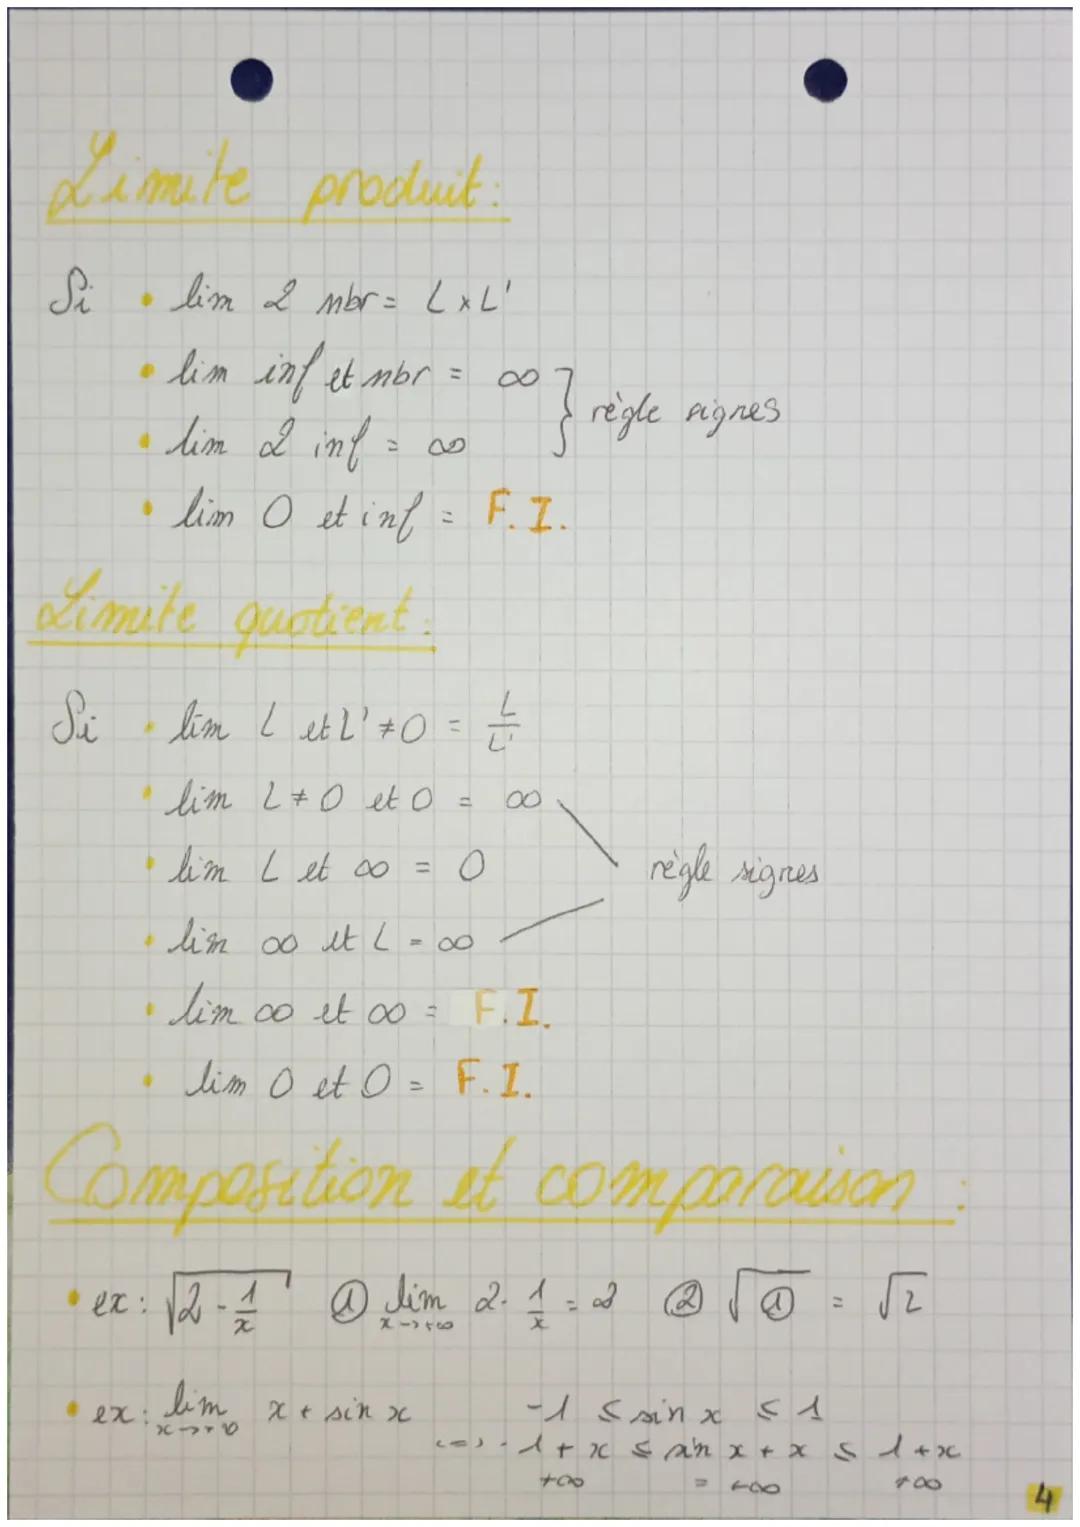 Limite produit :
Si • lim 2 nbr = L x L'
• lim inf et nbr = ∞
• lim 2 inf = ∞
} règle signes
• lim 0 et inf = F.I.
Limite quotient :
Si • lim L et L' ≠ 0 = L/L'
• lim L ≠ 0 et 0 = ∞
• lim L et ∞ = 0
règle signes
• lim ∞ et L = ∞
• lim ∞ et ∞ = F.I.
• lim 0 et 0 = F.I.
Composition et comparaison :
• ex : √(2 - 1/x) ① lim x->+∞ 2 - 1/x = 2 ② √① = √2
• ex : lim x->+∞ x + sin x -1 ≤ sin x ≤ 1
<=> -1 + x ≤ sin x + x ≤ 1 + x
+∞ = +∞ +∞
4